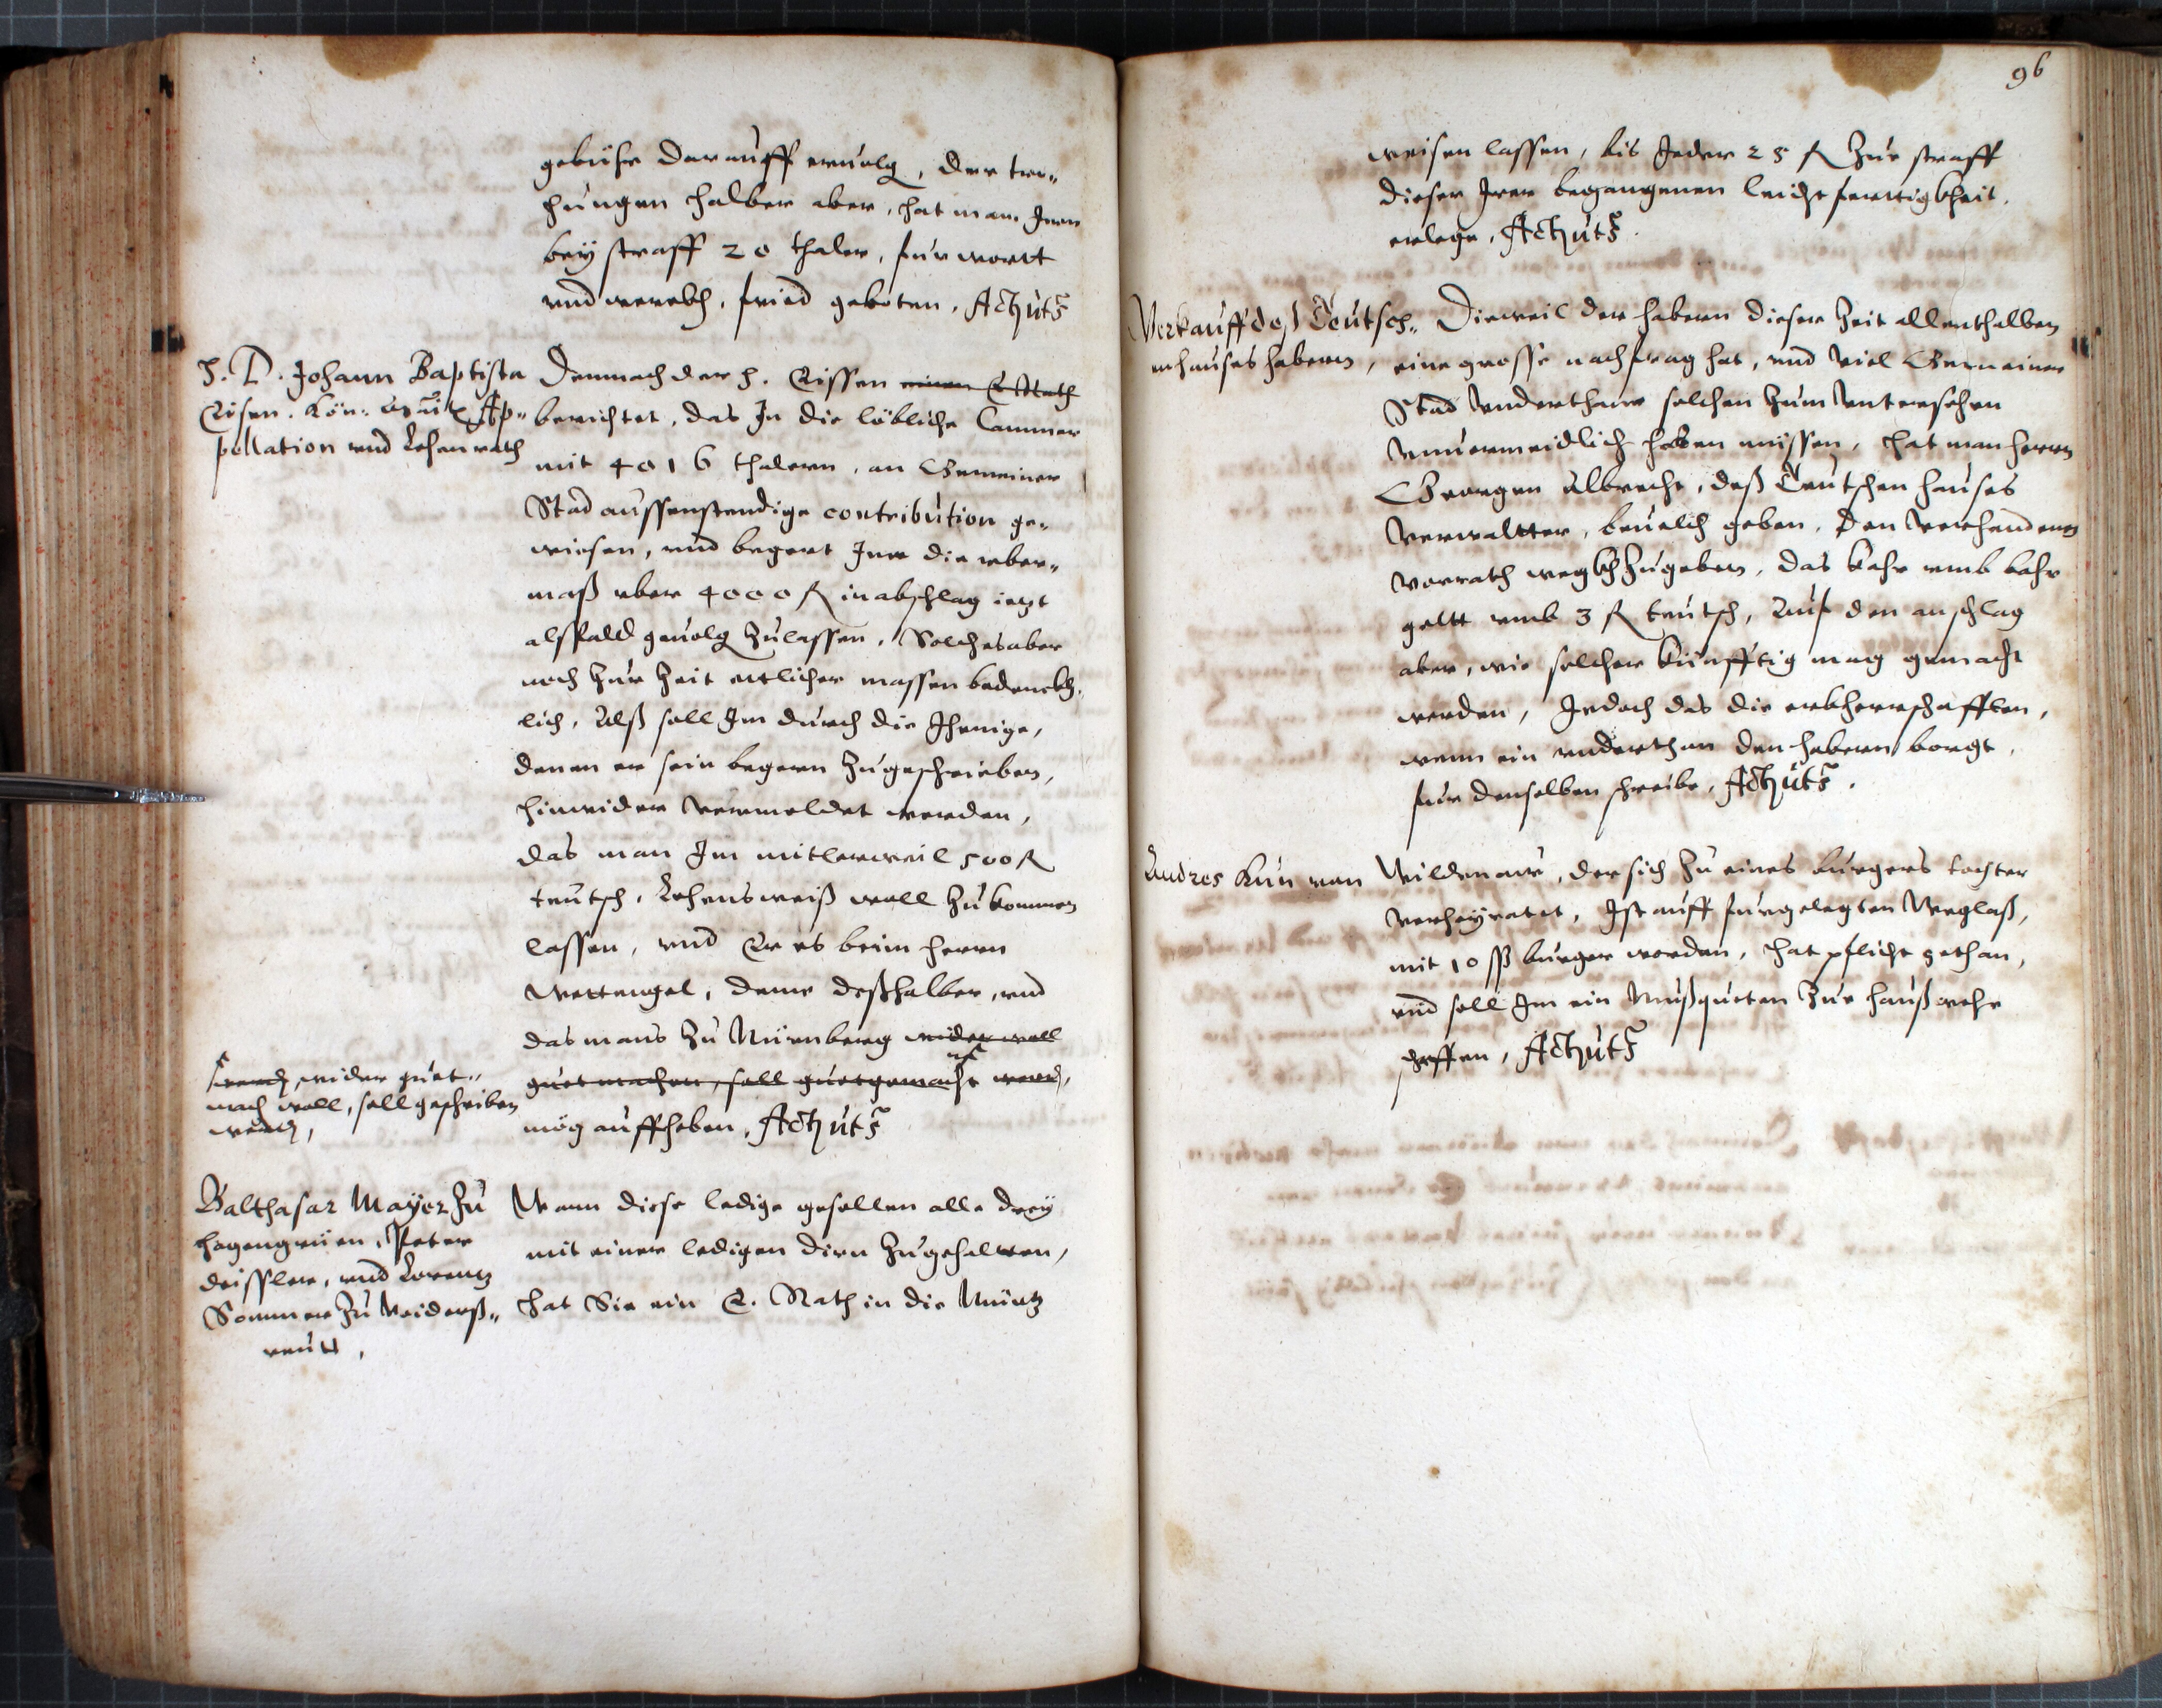 gebühr darauff eruolg, der tro„
hungen halber aber, hat man Inen
bey straff 20 thaler, fur wortt
vnd werckh, fried geboten, Act. ut s.
H. D. Johann Baptista
Eisen. Kön: Mät. Ap„
pellation vnd Lehenrath
Demnach der H. Eissen einen E. Rath
berichtet, das In die löbliche Cammer
mit 4016 thalern, an Gemeiner
Stad aussenstendige contribution ge„
wiesen, vnd begert Ime die vber„
maß vber 4000 fl in abschlag ietzt
alßbald geuolg zulassen, Solches aber
noch zur zeit ettlicher massen bedenckh„
lich, Alß soll Im durch die Jhenige,
denen er sein begern zugeschrieben,
hinwider vermeldet werden,
das man Im mitlerweil 500 fl
teutsch, Lehensweiß woll zukommen
lassen, vnd Er es beim herrn
Wettengel, deme deßhalber, vnd
das mans zu Nürnberg wider woll
guet machen, soll guetgemacht werd,
mög auffheben, Act. ut s.
werd, wider guet„
mach woll, soll geschrieben
werd,
Balthasar Mayer zu
Hagengrüen, Peter
deissler, vnd Lorentz
Sommer zu Voiderß„
reutt,
Wann diese ledige gesellen alle drey
mit einer ledigen dirn zugehalten,
hat Sie ein E. Rath in die Müntz
96
weisen lassen, bis Jeder 25 fl zur straff
dieser Irer begangenen leichtferttigkheit,
erlege, Act. ut s.
Verkauff deß Teutsch„
enhauses habern,
Dieweil der habern dieser zeit allenthalben
eine grosse nachfrag hat, vnd viel Gemeiner
Stad vnderthane solchen zum vntersehen
vnuermeidlich haben müssen, hat man herrn
Georgen Albrecht, deß Teutschen hauses
verwaltter, beuelch geben, den verhandenen
vorrath wegkhzugeben, das Kahr vmb bahr
geltt vmb 3 fl teutsch, Auf den anschlag
aber, wie solcher künfftig mag gemacht
werden, Jedoch das die erbherrschafften,
wenn ein vnderthan den habern borgt,
fur denselben schreibe, Act. ut s.
Andres Kun von
Wildenaw, der sich zu eines burgers tochter
verheyratet, Ist auff furgelegten Weglaß,
mit 10 ß burger worden, hat pflicht gethan,
vnd soll Im ein Mußqueten zur haußwehr
schaffen, Act. ut s.